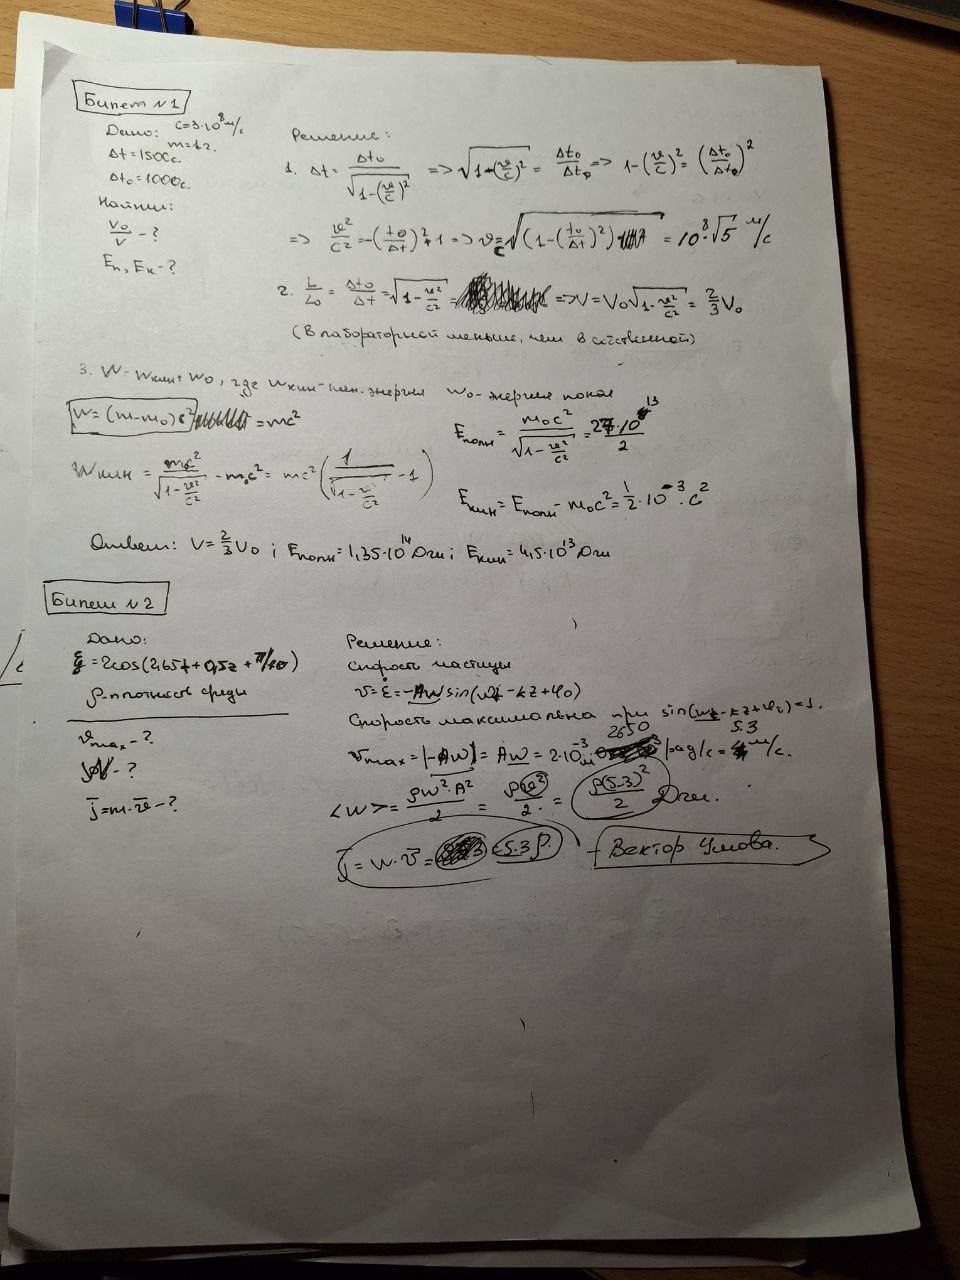 Билет №1
Дано: c=3·10⁸ м/с
m=1г.
Δt=1500с.
Δt₀=1000с.
Найти:
V₀/V - ?
Eп, Eк - ?
Решение:
1. Δt = Δt₀/√(1-(v/c)²) => √(1-(v/c)²) = Δt₀/Δt => 1-(v/c)² = (Δt₀/Δt)²
=> v²/c² = -(t₀/Δt)²+1 => v = c√((1-(t₀/Δt)²) = 10⁸·√5 м/с
2. L/L₀ = Δt₀/Δt = √(1-v²/c²) = => V = V₀√(1-v²/c²) = 2/3 V₀
(В лабораторной меньше, чем в собственной)
3. W = Wкин + W₀, где Wкин - кин. энергия W₀ - энергия покоя
W = (m-m₀)c² = mc²
Eполн = m₀c²/√(1-v²/c²) = 27·10¹³/2
Wкин = m₀c²/√(1-v²/c²) - m₀c² = mc²(1/√(1-v²/c²) - 1)
Eкин = Eполн - m₀c² = 1/2·10⁻³·c²
Ответ: V = 2/3 V₀ ; Eполн = 1,35·10¹⁴ Дж ; Eкин = 4,5·10¹³ Дж
Билет №2
Дано:
ξ = 2cos(2,65t + 0,5z + π/10)
ρ - плотность среды
vmax - ?
W - ?
j = m·v - ?
Решение:
Скорость частицы
v = ξ = -Aw sin(wt - kz + φ₀)
Скорость максимальна при sin(wt - kz + φ₀) = 1.
vmax = |-Aw| = Aw = 2·10⁻³ м 2650 рад/с = 5.3 м/с.
<W> = ρw²·A²/2 = ρv²/2 = ρ(5.3)²/2 Дж.
j = W·v = 5.3 ρ. - Вектор Умова.